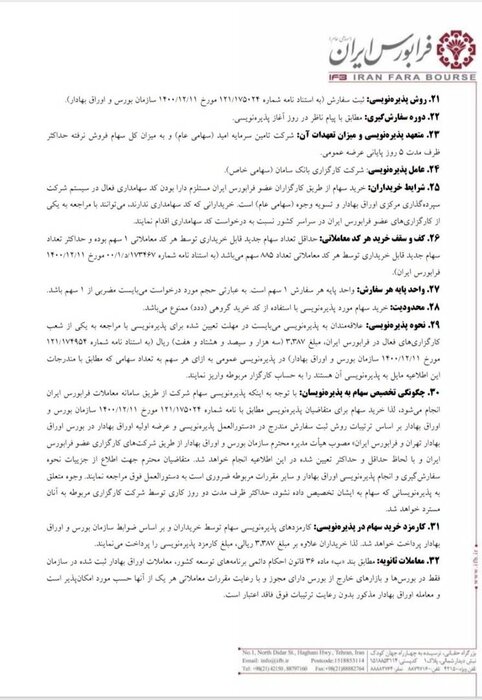 فرابورس ایران
(سهامی عام)
IFB IRAN FARA BOURSE
۲۱. روش پذیره‌نویسی: ثبت سفارش (به استناد نامه شماره ۱۲۱/۱۷۵۰۲۴ مورخ ۱۴۰۰/۱۲/۱۱ سازمان بورس و اوراق بهادار).
۲۲. دوره سفارش‌گیری: مطابق با پیام ناظر در روز آغاز پذیره‌نویسی.
۲۳. متعهد پذیره‌نویسی و میزان تعهدات آن: شرکت تامین سرمایه امید (سهامی عام) و به میزان کل سهام فروش نرفته حداکثر
ظرف مدت ۵ روز پایانی عرضه عمومی.
۲۴. عامل پذیره‌نویسی: شرکت کارگزاری بانک سامان (سهامی خاص).
۲۵. شرایط خریداران: خرید سهام از طریق کارگزاران عضو فرابورس ایران مستلزم دارا بودن کد سهامداری فعال در سیستم شرکت
سپرده‌گذاری مرکزی اوراق بهادار و تسویه وجوه (سهامی عام) است. خریدارانی که کد سهامداری ندارند، می‌توانند با مراجعه به یکی
از کارگزاری‌های عضو فرابورس ایران در سراسر کشور نسبت به درخواست کد سهامداری اقدام نمایند.
۲۶. کف و سقف خرید هر کد معاملاتی: حداقل تعداد سهام جدید قابل خریداری توسط هر کد معاملاتی ۱ سهم بوده و حداکثر تعداد
سهام جدید قابل خریداری توسط هر کد معاملاتی تعداد ۸۸۵ سهم می‌باشد (به استناد نامه شماره ۱۷۳۴۶۷/د/۰۰/۱ مورخ ۱۴۰۰/۱۲/۱۱
فرابورس ایران).
۲۷. واحد پایه هر سفارش: واحد پایه هر سفارش ۱ سهم است. به عبارتی حجم مورد درخواست می‌بایست مضربی از ۱ سهم باشد.
۲۸. محدودیت: خرید سهام مورد پذیره‌نویسی با استفاده از کد خرید گروهی (ددد) ممنوع می‌باشد.
۲۹. نحوه پذیره‌نویسی: علاقه‌مندان به پذیره‌نویسی می‌بایست در مهلت تعیین شده برای پذیره‌نویسی با مراجعه به یکی از شعب
کارگزاری‌های فعال در فرابورس ایران، مبلغ ۳,۳۸۷ (سه هزار و سیصد و هشتاد و هفت) ریال (به استناد نامه شماره ۱۲۱/۱۷۴۹۵۴
مورخ ۱۴۰۰/۱۲/۱۱ سازمان بورس و اوراق بهادار) در پذیره‌نویسی عمومی به ازای هر سهم به تعداد سهامی که مطابق با مندرجات
این اطلاعیه مایل به پذیره‌نویسی آن هستند را به حساب کارگزار مربوطه واریز نمایند.
۳۰. چگونگی تخصیص سهام به پذیره‌نویسان: با توجه به اینکه پذیره‌نویسی سهام شرکت از طریق سامانه معاملات فرابورس ایران
انجام می‌شود، لذا خرید سهام برای متقاضیان پذیره‌نویسی مطابق با نامه شماره ۱۲۱/۱۷۵۰۲۴ مورخ ۱۴۰۰/۱۲/۱۱ سازمان بورس و
اوراق بهادار بر اساس ترتیبات روش ثبت سفارش مندرج در «دستورالعمل پذیره‌نویسی و عرضه اولیه اوراق بهادار در بورس اوراق
بهادار تهران و فرابورس ایران» مصوب هیأت مدیره محترم سازمان بورس و اوراق بهادار از طریق شرکت‌های کارگزاری عضو فرابورس
ایران و با لحاظ حداقل و حداکثر تعیین شده در این اطلاعیه انجام خواهد شد. متقاضیان محترم جهت اطلاع از جزییات نحوه
سفارش‌گیری و انجام پذیره‌نویسی اوراق بهادار و سایر مقررات مربوطه ضروری است به دستورالعمل فوق مراجعه نمایند. وجوه متعلق
به پذیره‌نویسانی که سهام به ایشان تخصیص داده نشود، حداکثر ظرف مدت دو روز کاری توسط شرکت کارگزاری مربوطه به آنان
مسترد خواهد شد.
۳۱. کارمزد خرید سهام در پذیره‌نویسی: کارمزدهای پذیره‌نویسی سهام توسط خریداران و بر اساس ضوابط سازمان بورس و اوراق
بهادار پرداخت خواهد شد. لذا خریداران علاوه بر مبلغ ۳,۳۸۷ ریالی، مبلغ کارمزد پذیره‌نویسی را پرداخت می‌نمایند.
۳۲. معاملات ثانویه: مطابق بند «ب» ماده ۳۶ قانون احکام دائمی برنامه‌های توسعه کشور، معاملات اوراق بهادار ثبت شده در سازمان
فقط در بورس‌ها و بازارهای خارج از بورس دارای مجوز و با رعایت مقررات معاملاتی هر یک از آنها حسب مورد امکان‌پذیر است
و معامله اوراق بهادار مذکور بدون رعایت ترتیبات فوق فاقد اعتبار است.
www.ifb.ir
بزرگراه حقانی، نرسیده به چهارراه جهان کودک
No.1, North Didar St., Haghani Hwy., Tehran, Iran
نبش دیدار شمالی، پلاک ۱ کدپستی: ۱۵۱۸۸۵۳۱۱۴
Email: info@ifb.ir Postcode:1518853114